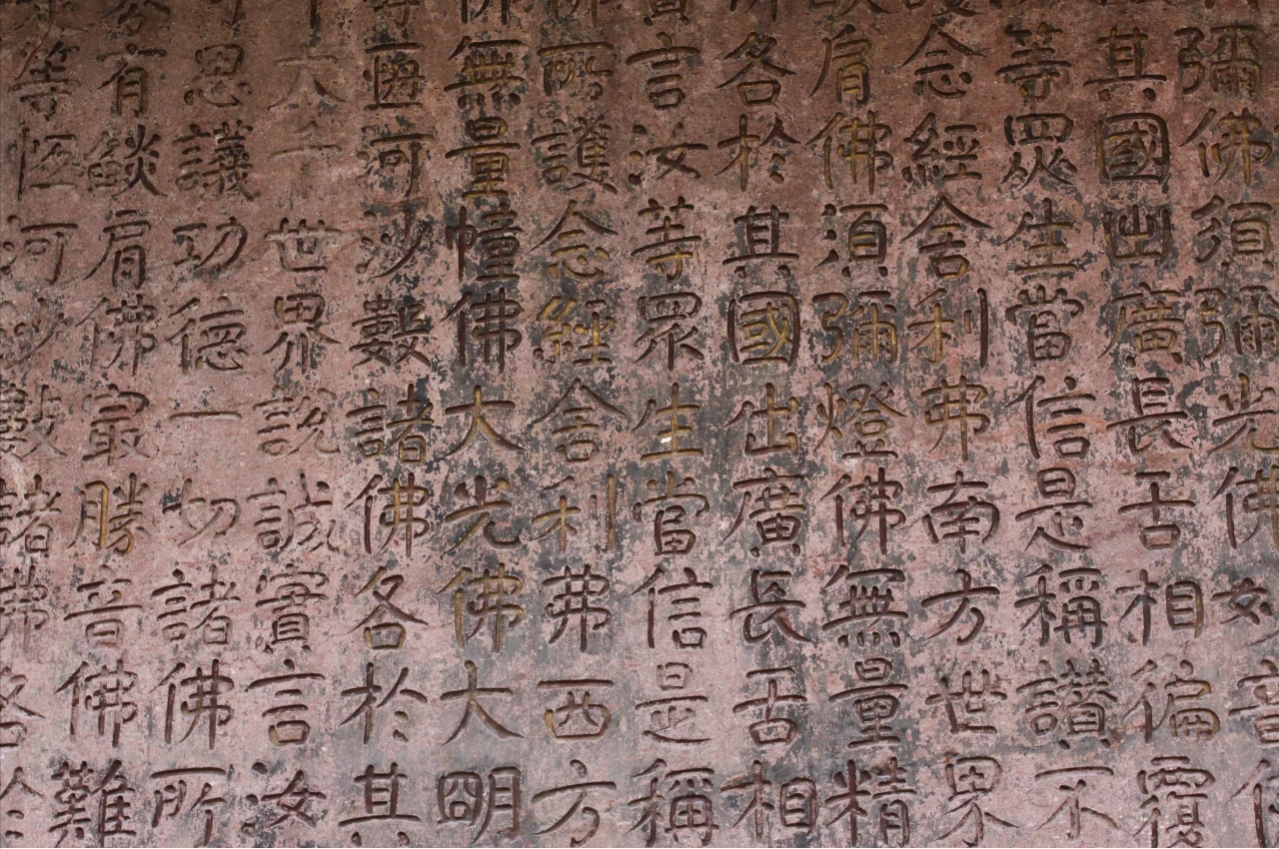 彌佛須彌光佛妙音佛
其國出廣長舌相徧覆
等眾生當信是稱讚不
護念經舍利弗南方世界
燄肩佛須彌燈佛無量精
各於其國出廣長舌相
實言汝等眾生當信是稱
佛所護念經舍利弗西方
佛無量幢佛大光佛大明
等恆河沙數諸佛各於其
大千世界說誠實言汝
可思議功德一切諸佛所
有燄肩佛最勝音佛難
等恆河沙數諸佛各於